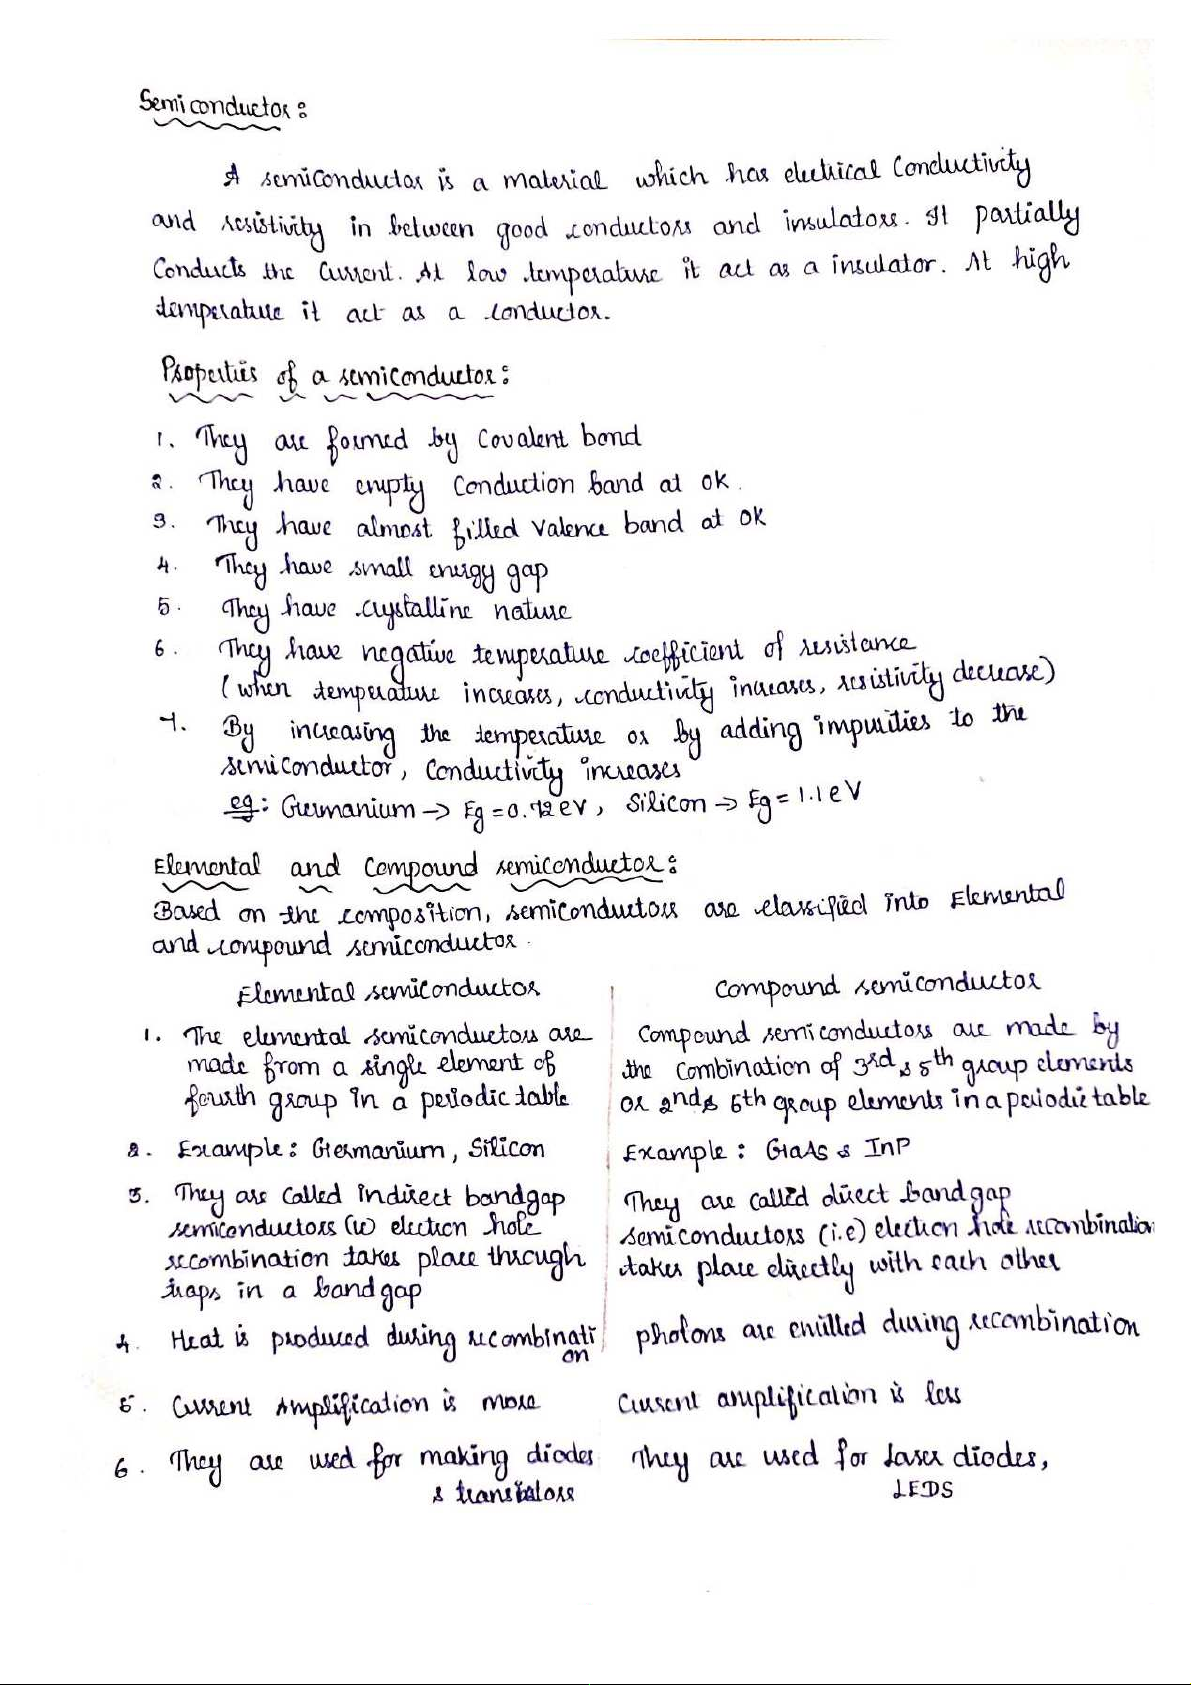 Semiconductor:
A semiconductor is a material which has electrical conductivity
and resistivity in between good conductors and insulators. It partially
conducts the current. At low temperature it act as a insulator. At high
temperature it act as a conductor.
Properties of a semiconductor:
1. They are formed by covalent bond
2. They have empty conduction band at 0K.
3. They have almost filled valence band at 0K
4. They have small energy gap
5. They have crystalline nature
6. They have negative temperature coefficient of resistance
(when temperature increases, conductivity increases, resistivity decrease)
7. By increasing the temperature or by adding impurities to the
semiconductor, conductivity increases
eg: Germanium → Eg = 0.72 eV, Silicon → Eg = 1.1 eV
Elemental and Compound semiconductor:
Based on the composition, semiconductors are classified into Elemental
and compound semiconductor.
Elemental semiconductor
Compound semiconductor
1. The elemental semiconductors are
made from a single element of
fourth group in a periodic table
Compound semiconductors are made by
the combination of 3rd & 5th group elements
or 2nd & 6th group elements in a periodic table
2. Example: Germanium, Silicon
Example: GaAs & InP
3. They are called indirect bandgap
semiconductors (ie) electron hole
recombination takes place through
traps in a bandgap
They are called direct bandgap
semiconductors (i.e) electron hole recombination
takes place directly with each other
4. Heat is produced during recombinati
on
photons are emitted during recombination
5. Current Amplification is more
Current amplification is less
6. They are used for making diodes
& transistors
They are used for laser diodes,
LEDS